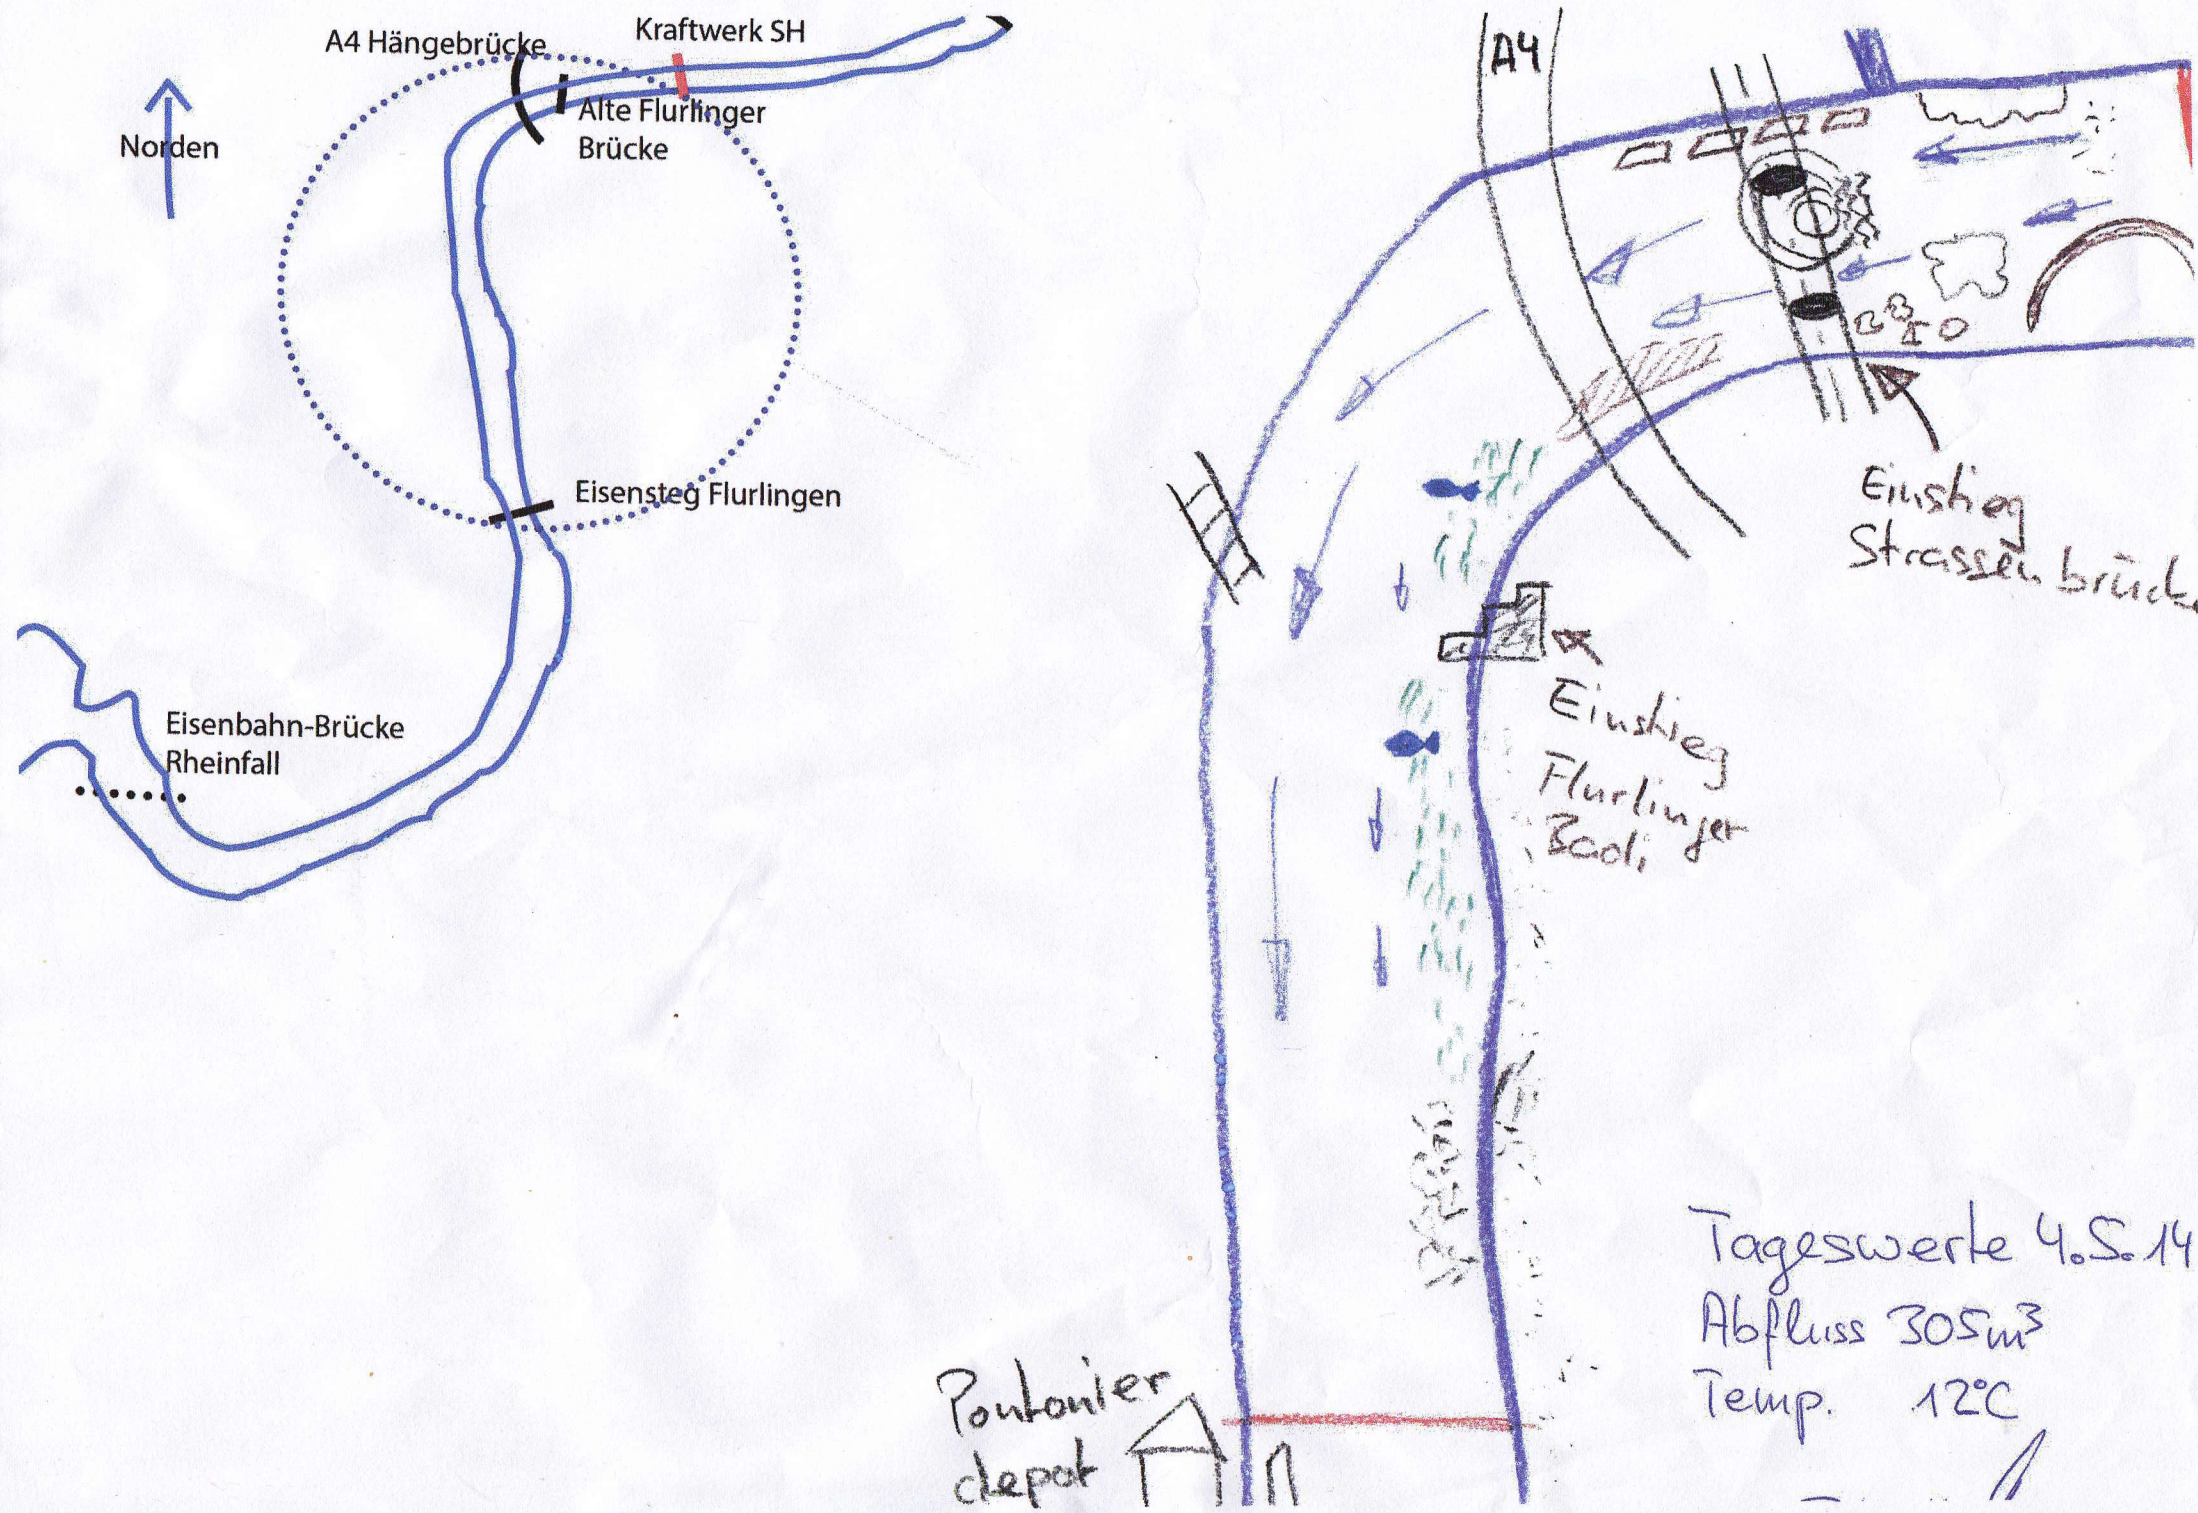 A4 Hängebrücke
Kraftwerk SH
Norden
Alte Flurlinger
Brücke
Eisensteg Flurlingen
Eisenbahn-Brücke
Rheinfall
A4
Einstieg
Strassenbrücke
Einstieg
Flurlinger
Badi
Pontonier
depot
Tageswerte 4.5.14
Abfluss 305m³
Temp. 12°C